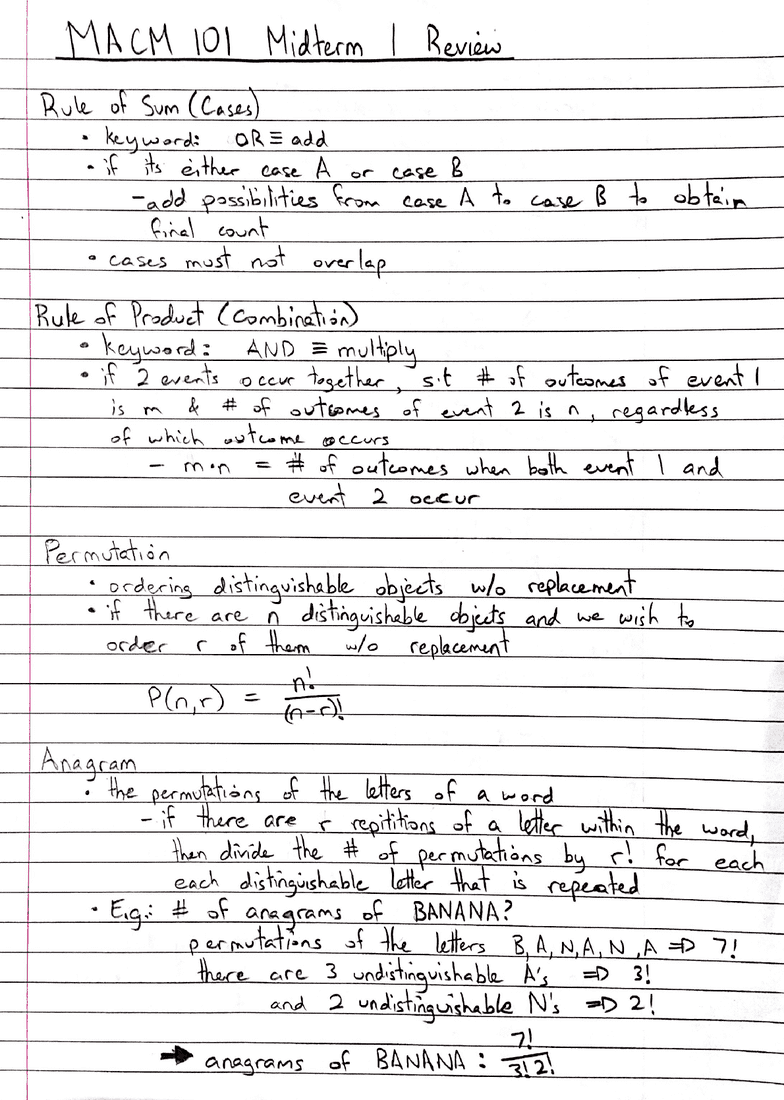 MACM 101 Midterm 1 Review
Rule of Sum (Cases)
• keyword: OR ≡ add
• if its either case A or case B
- add possibilities from case A to case B to obtain
final count
• cases must not overlap
Rule of Product (Combination)
• keyword: AND ≡ multiply
• if 2 events occur together, s.t # of outcomes of event 1
is m & # of outcomes of event 2 is n, regardless
of which outcome occurs
- m·n = # of outcomes when both event 1 and
event 2 occur
Permutation
• ordering distinguishable objects w/o replacement
• if there are n distinguishable objects and we wish to
order r of them w/o replacement
P(n,r) = n!/(n-r)!
Anagram
• the permutations of the letters of a word
- if there are r repititions of a letter within the word,
then divide the # of permutations by r! for each
each distinguishable letter that is repeated
• E.g.: # of anagrams of BANANA?
permutations of the letters B,A,N,A,N,A => 7!
there are 3 undistinguishable A's => 3!
and 2 undistinguishable N's => 2!
→ anagrams of BANANA : 7!/3!2!